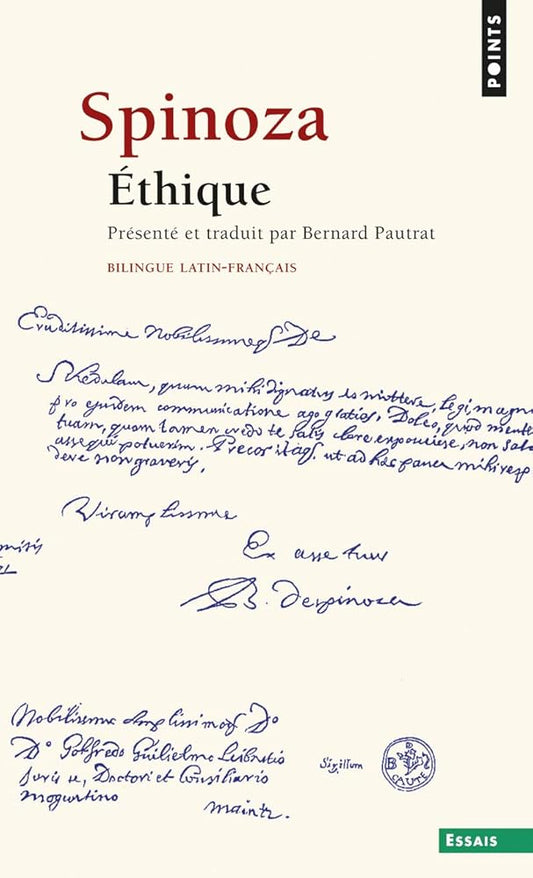 POINTS
Spinoza
Éthique
Présenté et traduit par Bernard Pautrat
BILINGUE LATIN-FRANÇAIS
Eruditissime Nobilissimeqꝫ De
Schedulam, quam mihi dignatus es mittere, legi, magn
pro ejusdem communicatione ago gratias. Doleo, quod mente
tuam, quam tamen credo te satis clare exposuisse, non sat
assequi potuerim. Precor itaqꝫ ut ad hæc pauca mihi resp
dere non graveris.
Vir amplissime
Ex asse tuus
B. despinoza
Nobilissimo Amplissimoqꝫ Dº
Dº Gotfredo Guilielmo Leibnitio
Juris u, Doctori et Consiliario
Mogurtino
Maintz.
Sigillum
B D S
CAUTE
ESSAIS